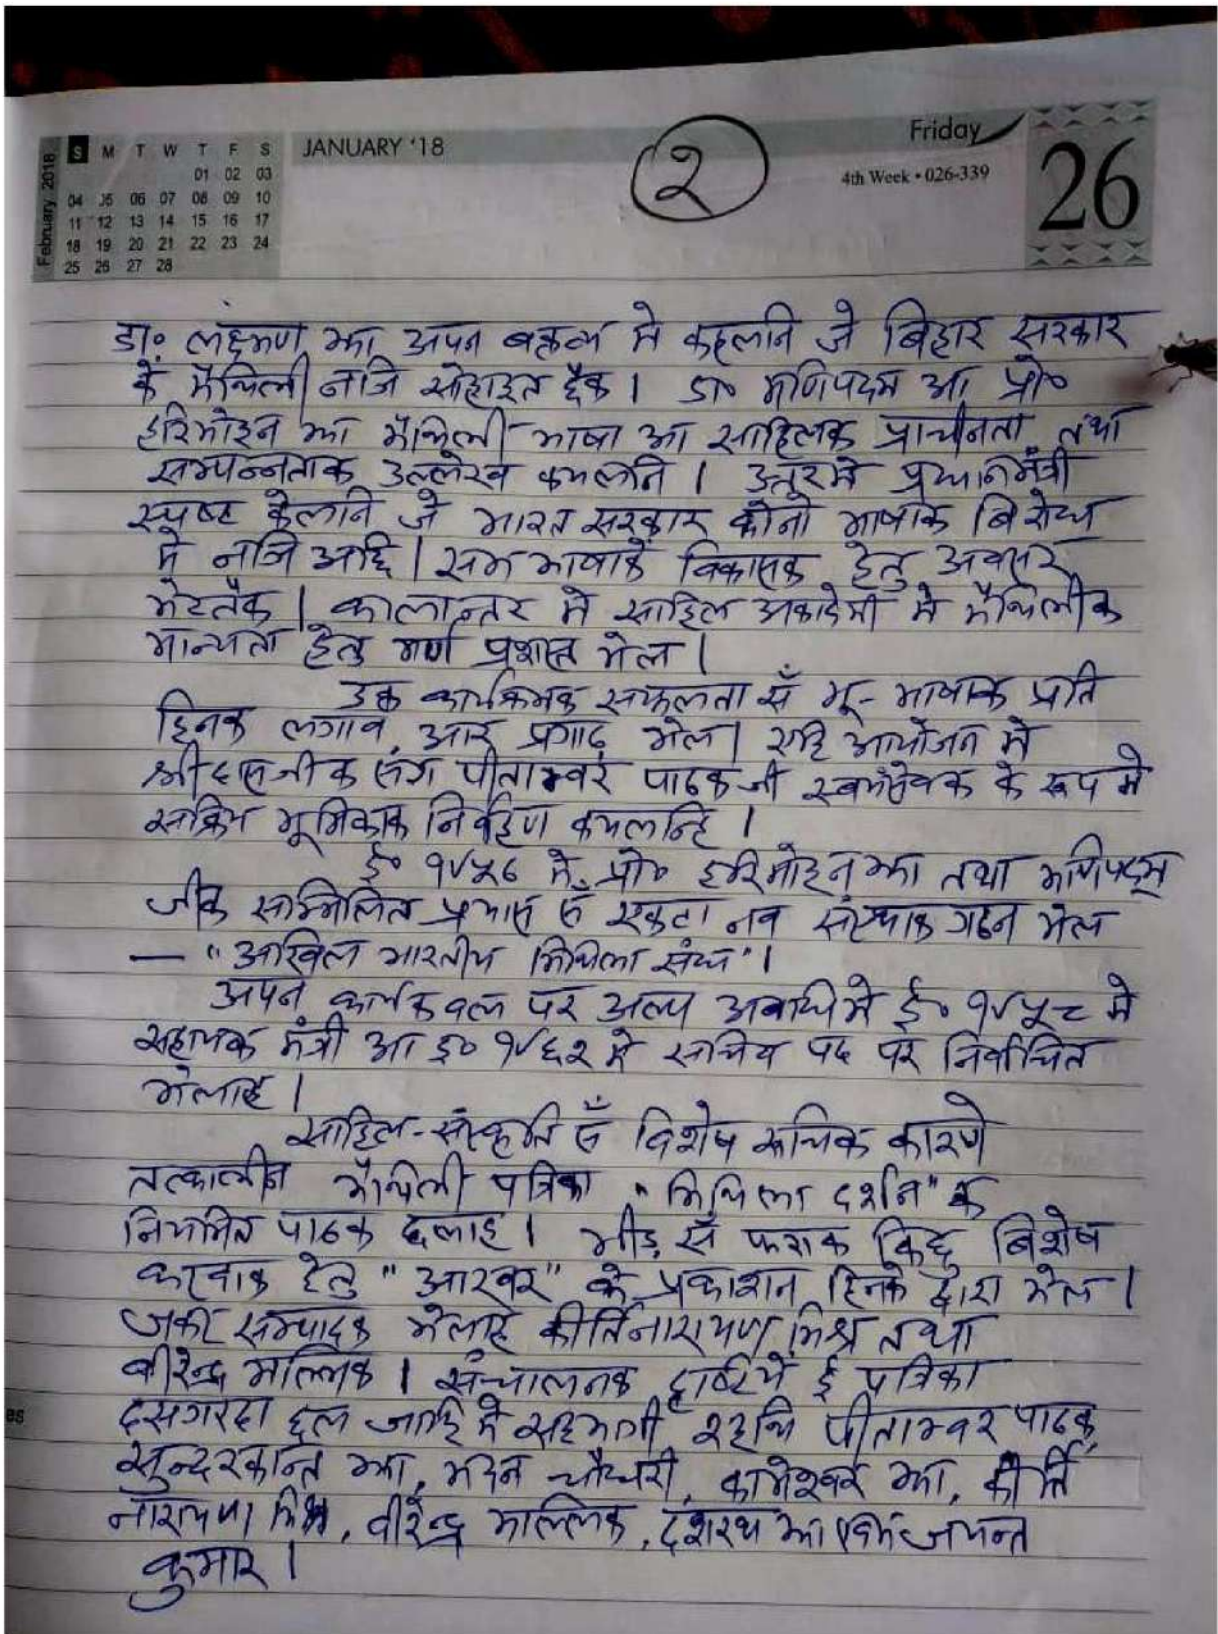 February 2018
S M T W T F S
01 02 03
04 05 06 07 08 09 10
11 12 13 14 15 16 17
18 19 20 21 22 23 24
25 26 27 28
JANUARY '18
२
Friday
4th Week • 026-339
26
डा० लक्ष्मण झा अपन बक्तव्य मे कहलनि जे बिहार सरकार
कें मैथिली नञि सोहाइत छैक। डा० मणिपदम आ प्रो०
हरिमोहन झा मैथिली भाषा आ साहित्यक प्राचीनता तथा
सम्पन्नताक उल्लेख कयलनि। उत्तरमे प्रधानमंत्री
स्पष्ट केलनि जे भारत सरकार कोनो भाषाक बिरोध
मे नञि अछि। सभ भाषाकें विकासक हेतु अवसर
भेटतैक। कालान्तर मे साहित्य अकादेमी मे मैथिलीक
मान्यता हेतु मार्ग प्रशस्त भेल।
उक्त कार्यक्रमक सफलता सँ मातृ-भाषाक प्रति
हिनक लगाव आर प्रगाढ़ भेल। एहि आयोजन मे
श्री दासजीक संग पीताम्वर पाठक जी स्वयंसेवक के रूप मे
सक्रिय भूमिकाक निर्वहण कयलन्हि।
ई० १९५६ मे प्रो० हरिमोहन झा तथा मणिपद्म
जीक सम्मिलित प्रयास सँ एकटा नव संस्थाक गठन भेल
— "अखिल भारतीय मिथिला संघ"।
अपन कार्यक वल पर अल्प अवधिमे ई० १९५८ मे
सहायक मंत्री आ ई० १९६२ मे सचिव पद पर निर्वाचित
भेलाह।
साहित्य-संस्कृति सँ विशेष रूचिक कारणे
तत्कालीन मैथिली पत्रिका "मिथिला दर्शन" के
नियमित पाठक छलाह। भीड़ सँ फराक किछु बिशेष
करवाक हेतु "आखर" के प्रकाशन हिनके द्वारा भेल।
जकर सम्पादक भेलाह कीर्तिनारायण मिश्र तथा
बीरेन्द्र मल्लिक। संचालनक दृष्टियें ई पत्रिका
दसगरदा छल जाहि मे सहभागी रहथि पीताम्वर पाठक,
सुन्दरकान्त झा, मदन चौधरी, कामेश्वर झा, कीर्ति
नारायण मिश्र, वीरेन्द्र मल्लिक, दशरथ झा एवं जयन्त
कुमार।